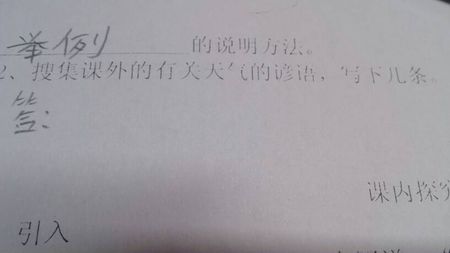 举例 的说明方法。
2、搜集课外的有关天气的谚语，写下几条。
答：
课内探究
引入